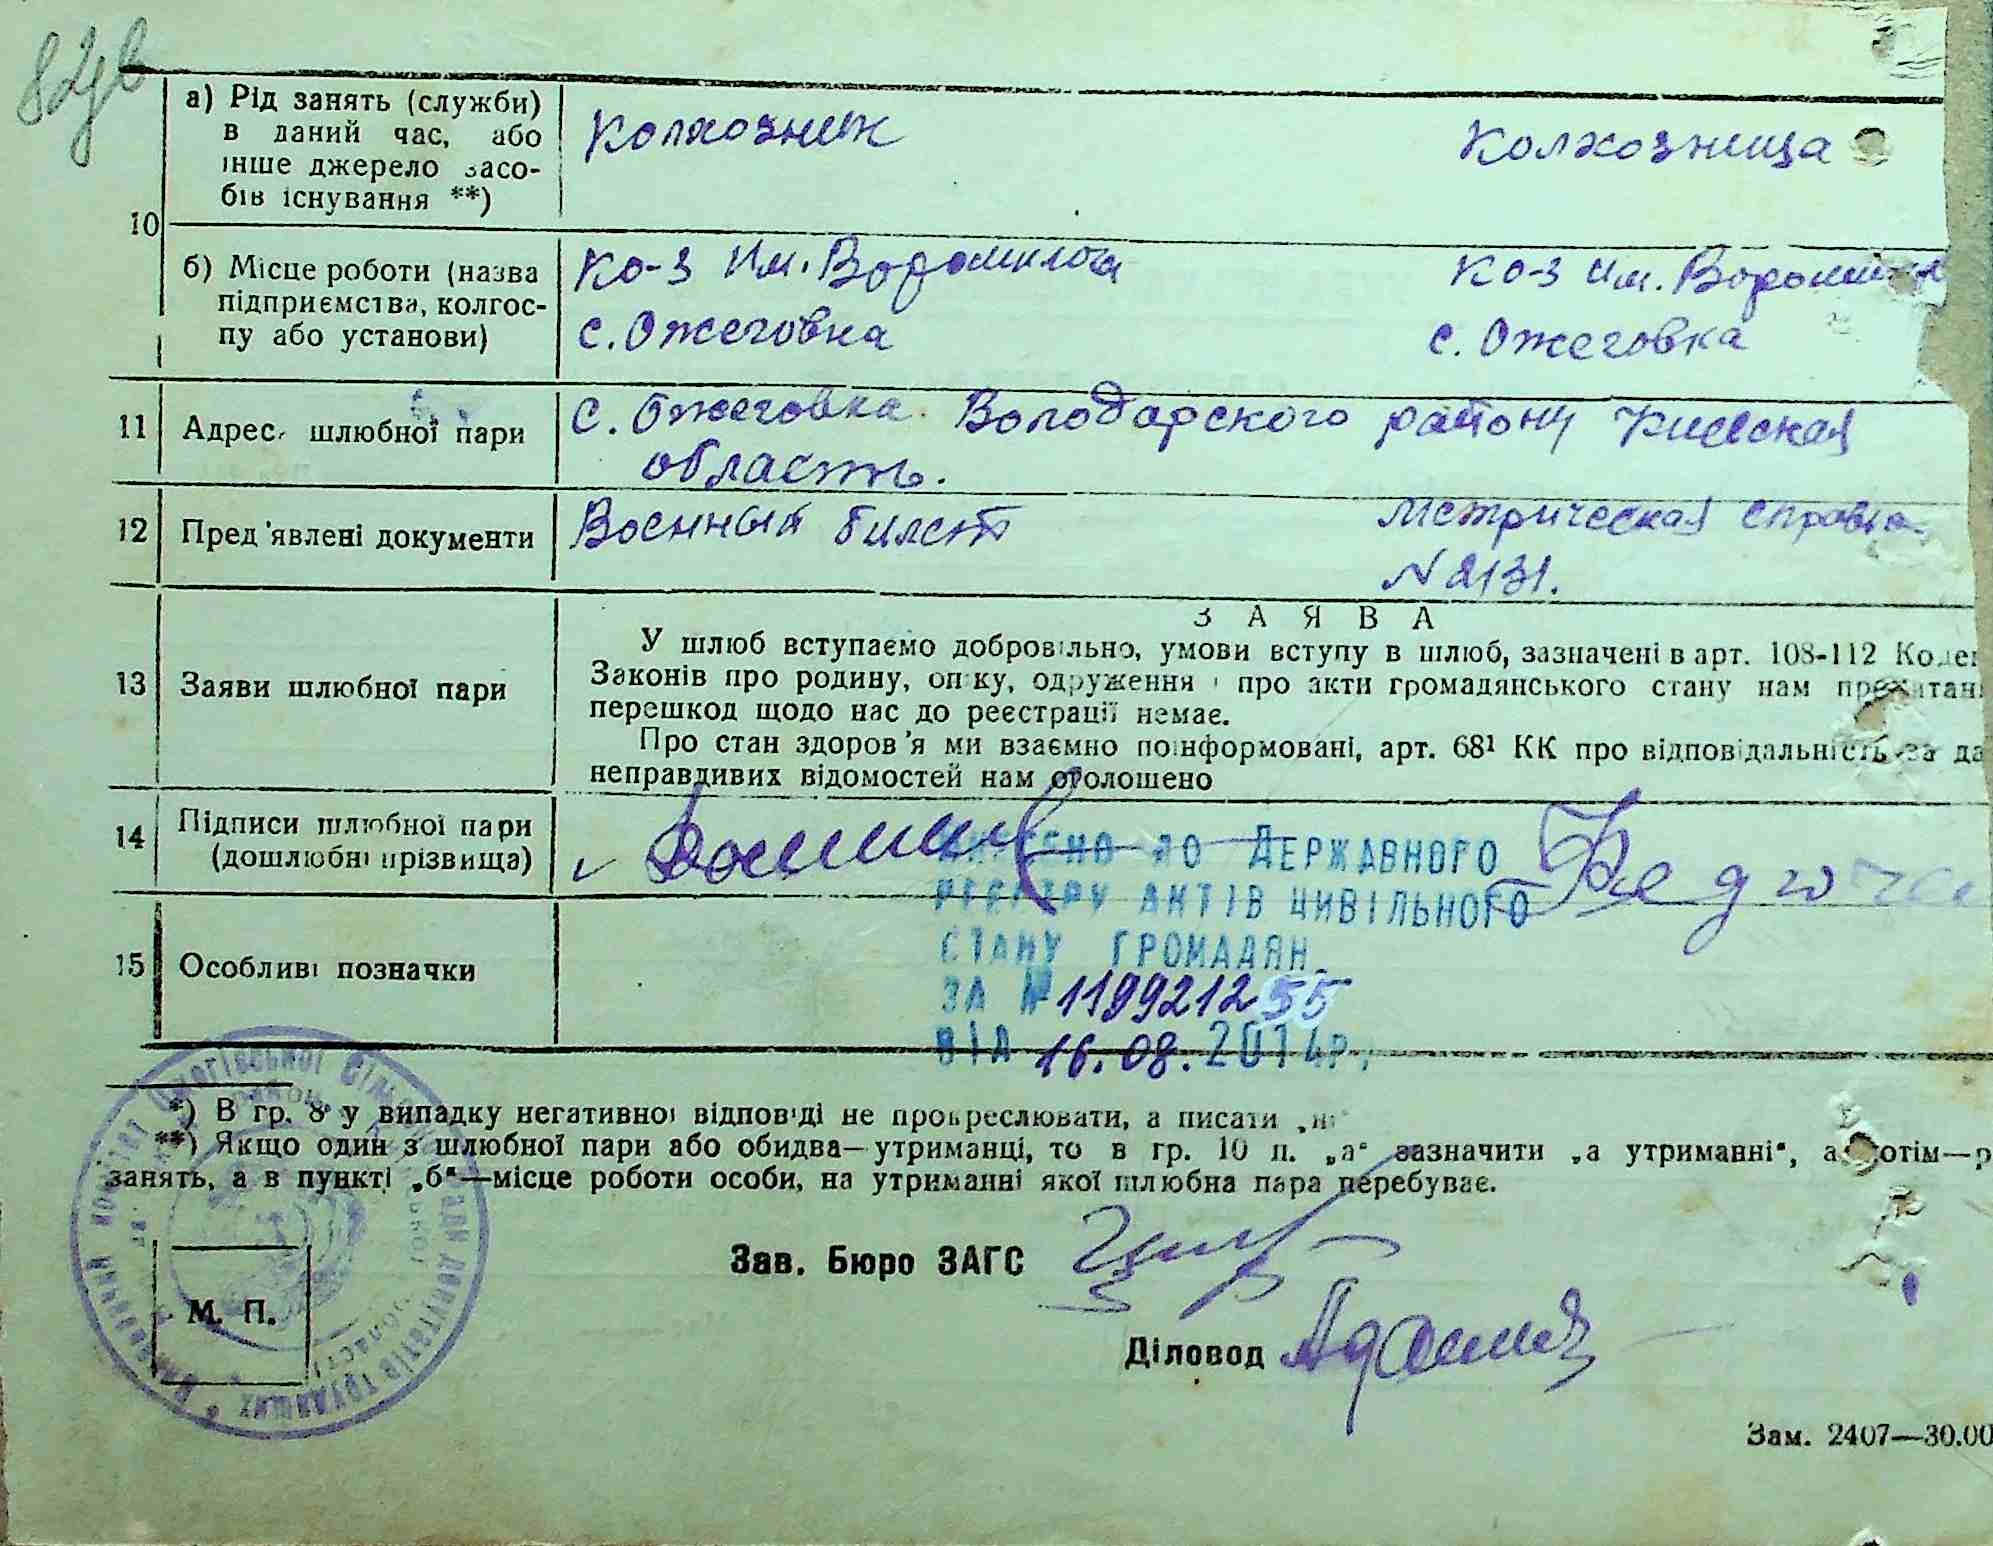 82
10
а) Рід занять (служби)
в даний час, або
інше джерело засо-
бів існування **)
Колхозник
Колхозница
б) Місце роботи (назва
підприємства, колгос-
пу або установи)
Ко-з Им. Ворошилова
с. Ожеговка
Ко-з Им.
с. Ожеговка
11
Адреса шлюбної пари
С. Ожеговка Володарского району Киевская
область.
12
Пред'явлені документи
Военный билет
Метрическая справка
N 2131.
13
Заяви шлюбної пари
ЗАЯВА
У шлюб вступаємо добровільно, умови вступу в шлюб, зазначені в арт. 108-112
Законів про родину, опіку, одруження і про акти громадянського стану нам
перешкод щодо нас до реєстрації немає.
Про стан здоров'я ми взаємно поінформовані, арт. 68¹ КК про відповідальність за
неправдивих відомостей нам оголошено
14
Підписи шлюбної пари
(дошлюбні прізвища)
15
Особливі позначки
ВНЕСЕНО ДО ДЕРЖАВНОГО
РЕЄСТРУ АКТІВ ЦИВІЛЬНОГО
СТАНУ ГРОМАДЯН
ЗА № 119921255
ВІД 16.08.2014р.
*) В гр. 8 у випадку негативної відповіді не прокреслювати, а писати
**) Якщо один з шлюбної пари або обидва—утриманці, то в гр. 10 п. „а" зазначити „а утриманні", а потім—
занять, а в пункті „б"—місце роботи особи, на утриманні якої шлюбна пара перебуває.
Зав. Бюро ЗАГС
М. П.
Діловод
Зам. 2407—30.00